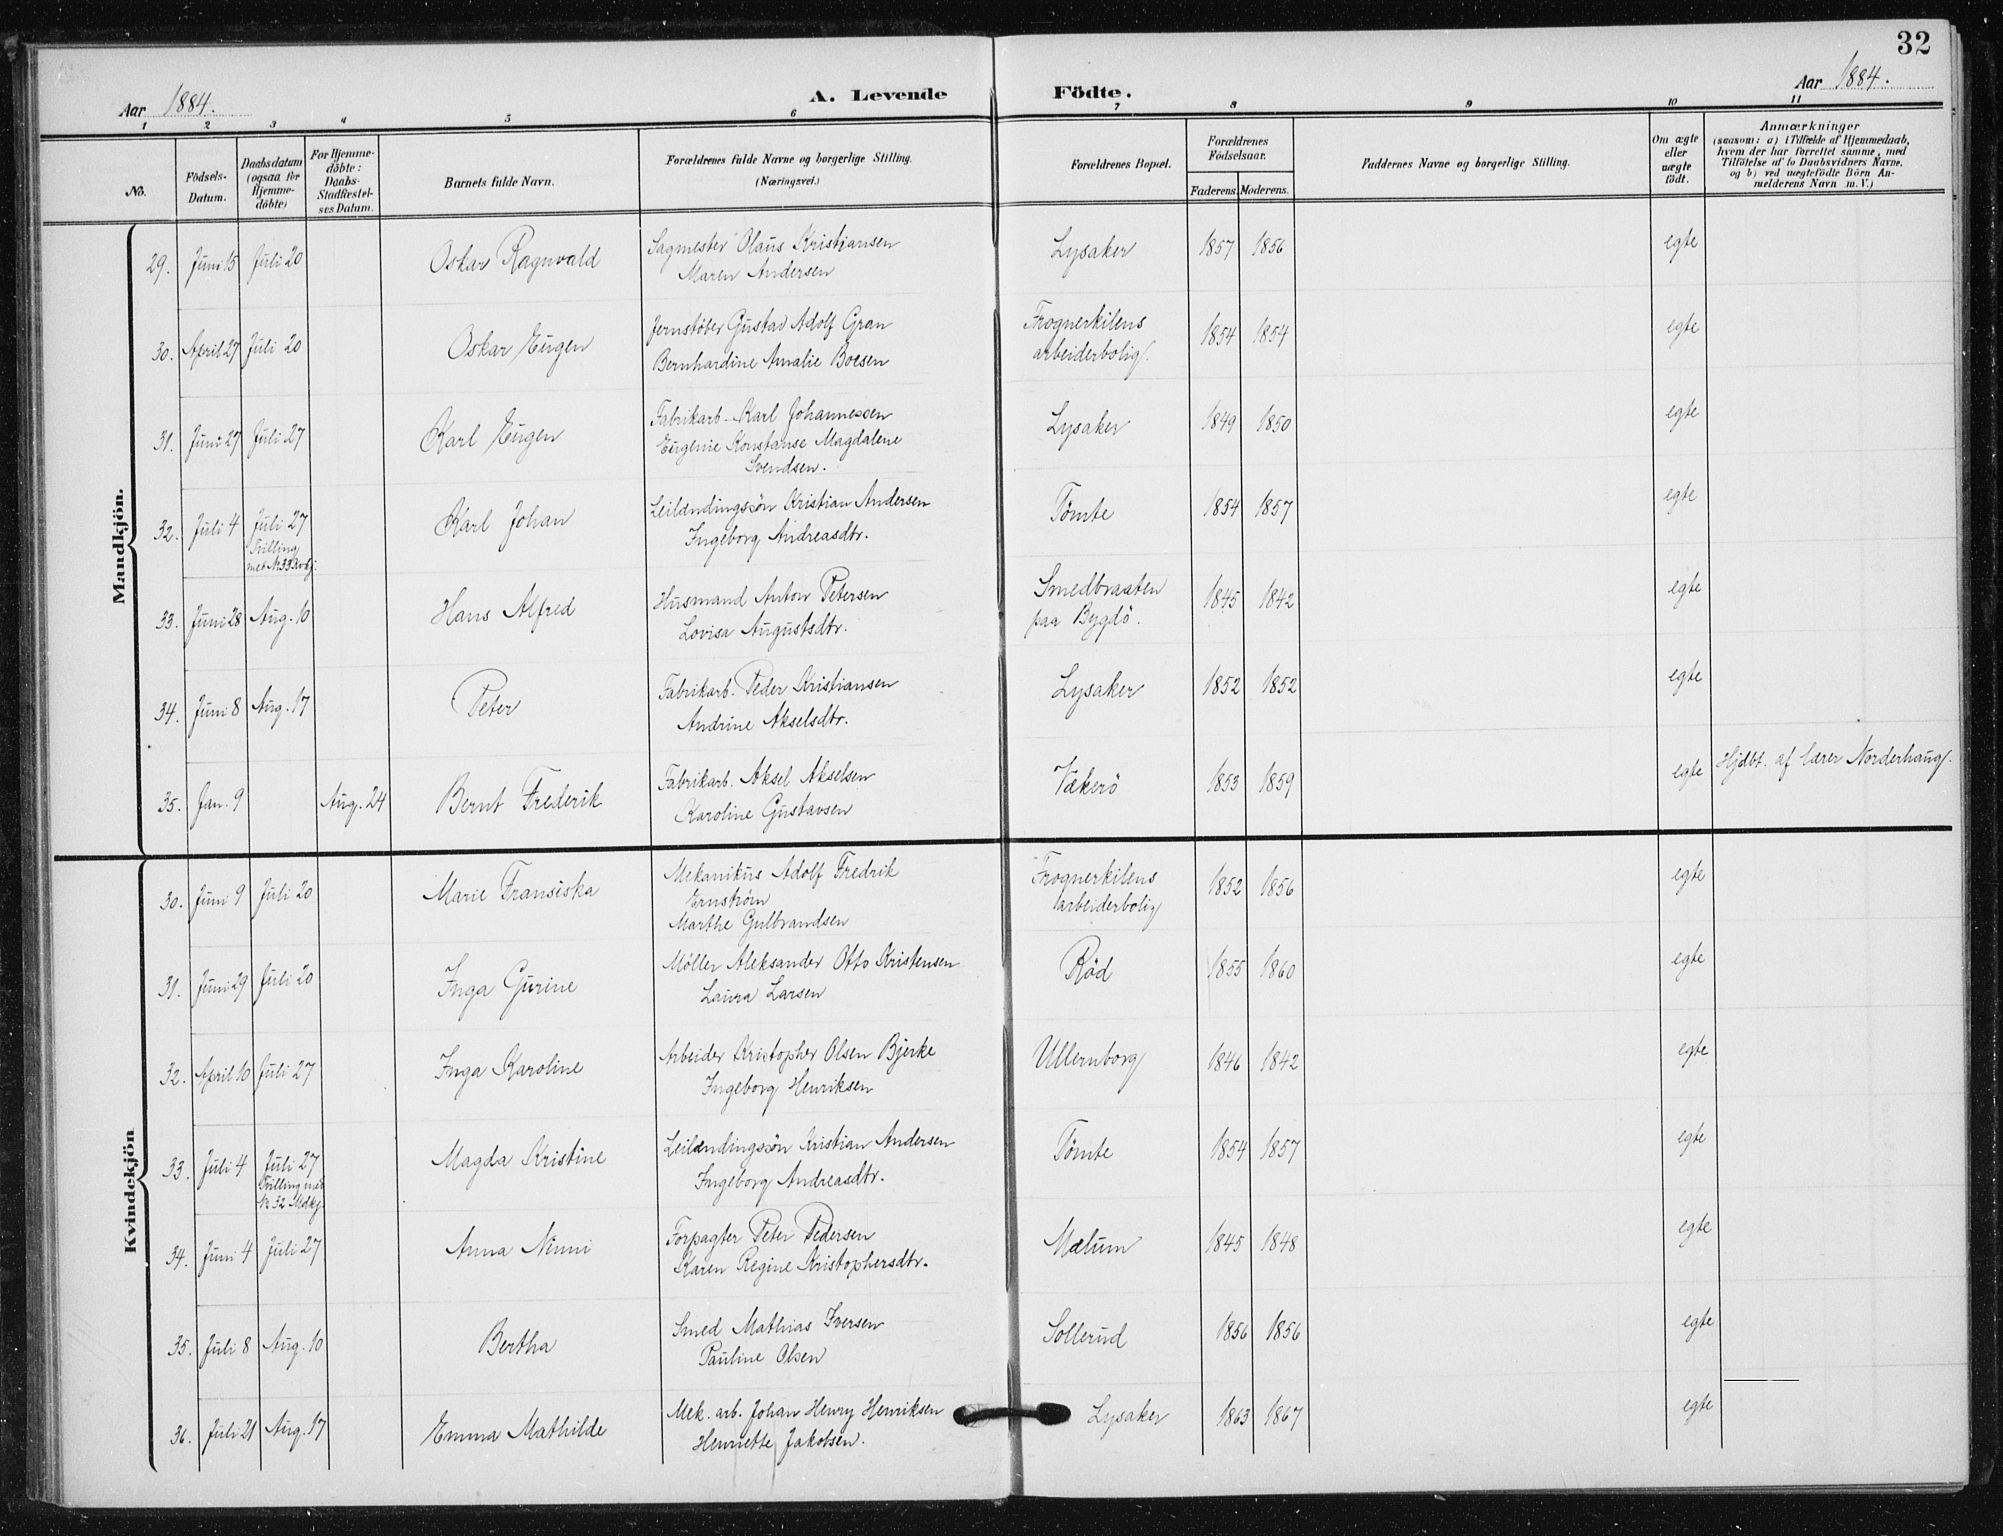 32
Aar 1884.
A. Levende Födte.
Aar 1884.
1 2 3 4 5 6 7 8 9 10 11
No.
Födsels-
Datum.
Daabsdatum
(ogsaa for
Hjemme-
döbte)
For Hjemme-
döbte:
Daabs-
Stadfæstel-
ses Datum.
Barnets fulde Navn.
Forældrenes fulde Navne og borgerlige Stilling.
(Næringsvei.)
Forældrenes Bopæl.
Forældrenes
Födselsaar.
Faderens. Moderens.
Faddernes Navne og borgerlige Stilling.
Om ægte
eller
uægte
født.
Anmærkninger
(saasom: a) i Tilfælde af Hjemmedaab,
hvem der har forrettet samme, med
Tilföielse af to Daabsvidners Navne,
og b) ved uægtefödte Börn An-
melderens Navn m. V.)
Mandkjön.
29. Juni 15 Juli 20 Oskar Ragnvald Sagmester Olaus Kristiansen Lysaker 1857 1856 egte
Maren Andersen
30. April 27 Juli 20 Oskar Eugen Jernstøber Gustav Adolf Gran Frognerkilens 1854 1854 egte
Bernhardine Amalie Boesen arbeiderbolig.
31. Juni 27 Juli 27 Karl Eugen Fabrikarb. Karl Johannessen Lysaker 1849 1850 egte
Eugenie Konstanse Magdalene
Svendsen.
32. Juli 4 Juli 27 Karl Johan Leilændingssön Kristian Andersen Tömte 1854 1857 egte
Tvilling Ingeborg Andreasdtr.
med No 33
33. Juni 28 Aug. 10 Hans Alfred Husmand Anton Petersen Smedbraaten 1845 1842 egte
Lovisa Augustsdtr. paa Bygdö.
34. Juni 8 Aug. 17 Peter Fabrikarb. Peder Kristiansen Lysaker 1852 1852 egte
Andrine Akselsdtr.
35. Jan. 9 Aug. 24 Bernt Frederik Fabrikarb. Aksel Akselsen Vækerö 1853 1859 egte Hjdbt. af lærer Norderhaug.
Karoline Gustavsen
Kvindekjön
30. Juni 9 Juli 20 Marie Fransiska Mekanikus Adolf Fredrik Frognerkilens 1852 1856 egte
Ernstrøm arbeiderbolig
Marthe Gulbrandsen
31. Juni 29 Juli 20 Inga Gurine Möller Aleksander Otto Kristensen Röd 1855 1860 egte
Laura Larsen
32. April 10 Juli 27 Inga Karoline Arbeider Kristopher Olsen Bjerke Ullernborg 1846 1842 egte
Ingeborg Henriksen
33. Juli 4 Juli 27 Magda Kristine Leilændingssön Kristian Andersen Tömte 1854 1857 egte
Tvilling med Ingeborg Andreasdtr.
No 32 Mdkj.
34. Juni 4 Juli 27 Anna Ninni Forpagter Peter Pedersen Mælum 1845 1848 egte
Karen Regine Kristophersdtr.
35. Juli 8 Aug. 10 Bertha Smed Mathias Iversen Sollerud 1856 1856 egte
Pauline Olsen
36. Juli 21 Aug. 17 Emma Mathilde Mek. arb. Johan Henry Henriksen Lysaker 1863 1867 egte
Henriette Jakobsen.